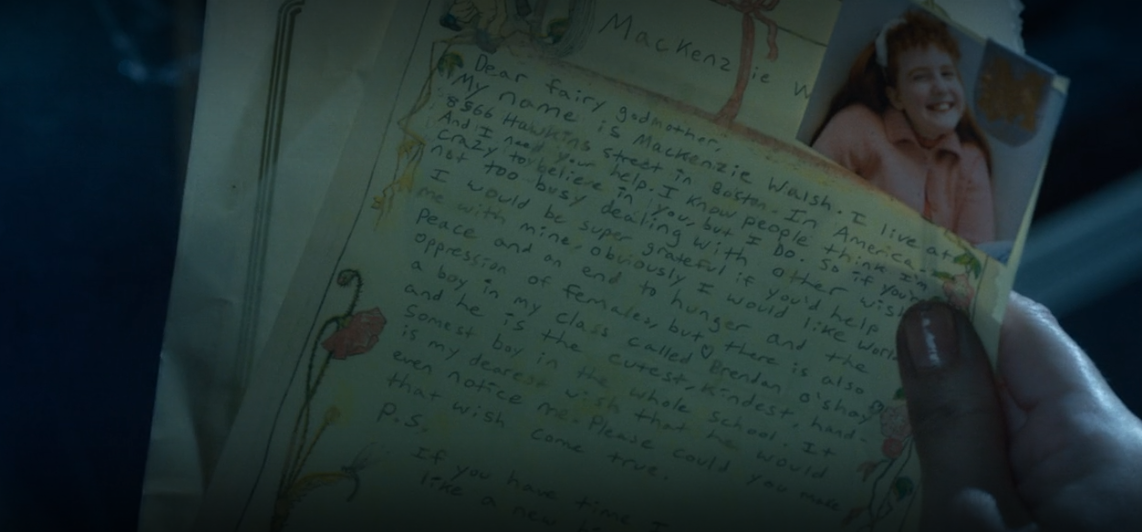 MacKenzie W
Dear fairy godmother,
My name is MacKenzie Walsh. I live at
Hawkins Street in Boston. In America.
And I need your help. I know people think I'm
crazy to believe in you, but I Do. So if you're
not too busy dealing with other wish
I would be super grateful if you'd help
me with mine, obviously I would like worl
Peace and an end to hunger and the
oppression of females, but there is also
a boy in my class called Brendan O'shay
and he is the cutest, kindest, hand-
somest boy in the whole school. It
is my dearest wish that he would
even notice me. Please could you make
that wish come true.
P.S.
If you have time I
like a new